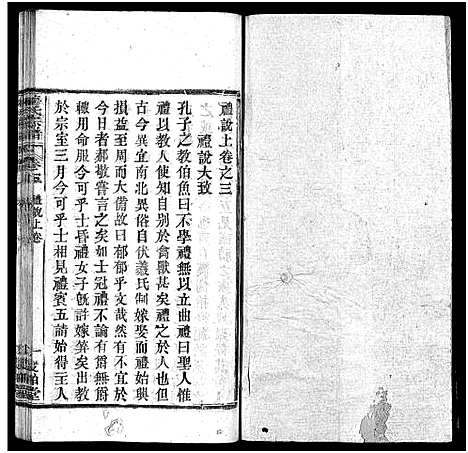 禮說上卷之三
禮說大致
孔子之教伯魚曰不學禮無以立曲禮曰聖人惟
禮以教人使知自别於禽獸甚矣禮之於人也但
古今異宜南北異俗自伏羲氏制嫁娶而禮始興
損益至周而大備故曰郁郁乎文哉然有不宜於
今日者郝敬嘗言之矣如士冠禮不論有爵無爵
轉用命服今可乎士昏禮女子旣許嫁筓矣出教
於宗室三月今可乎士相見禮賓五請始得主人
氏宗譜
卷三
禮說上卷
一
堂